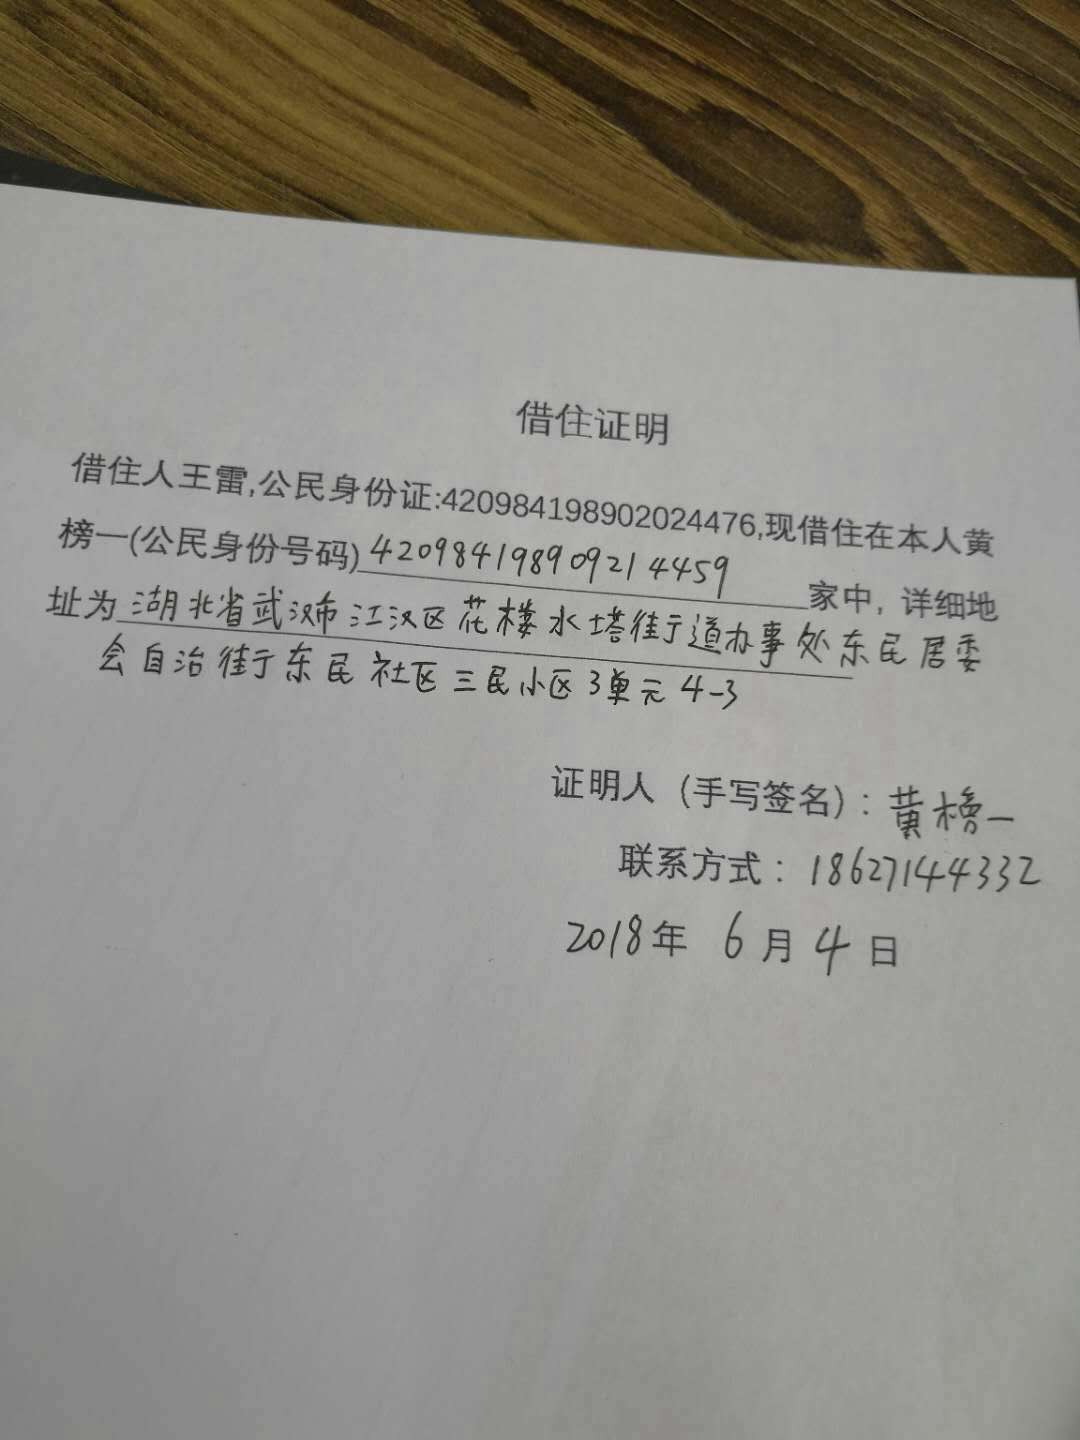 借住证明
借住人王雷,公民身份证:420984198902024476,现借住在本人黄
榜一(公民身份号码)420984198909214459家中，详细地
址为湖北省武汉市江汉区花楼水塔街道办事处东民居委
会自治街东民社区三民小区3单元4-3
证明人（手写签名）：黄榜一
联系方式：18627144332
2018年 6月4日